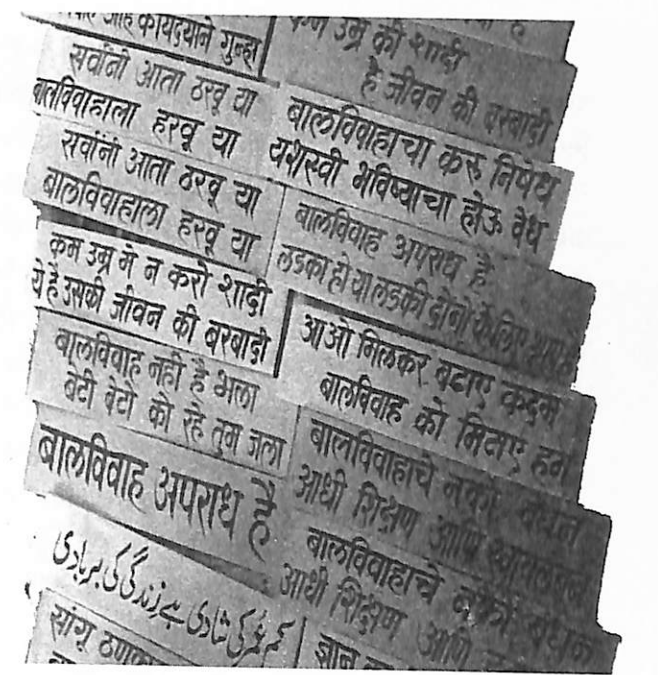 आहे कायदयाने गुन्हा
सर्वांनी आता ठरवू या
बालविवाहाला हरवू या
सर्वांनी आता ठरवू या
बालविवाहाला हरवू या
कम उम्र मे न करो शादी
ये है उसकी जीवन की बरबादी
बालविवाह नही है भला
बेटी बेटो को रहे तुम जला
बालविवाह अपराध है
کم عمر کی شادی ہے زندگی کی بربادی
सांगू
कम उम्र की शादी
है जीवन की बरबादी
बालविवाहाचा करु निषेध
यशस्वी भविष्याचा होऊ वेध
बालविवाह अपराध है
लडका हो या लडकी दोनो के लिए
आओ मिलकर बढाए कदम
बालविवाह को मिटाए हम
बालविवाहाचे नको बंधन
आधी शिक्षण आणि
बालविवाहाचे नको बंधन
आधी शिक्षण आणि
ज्ञान